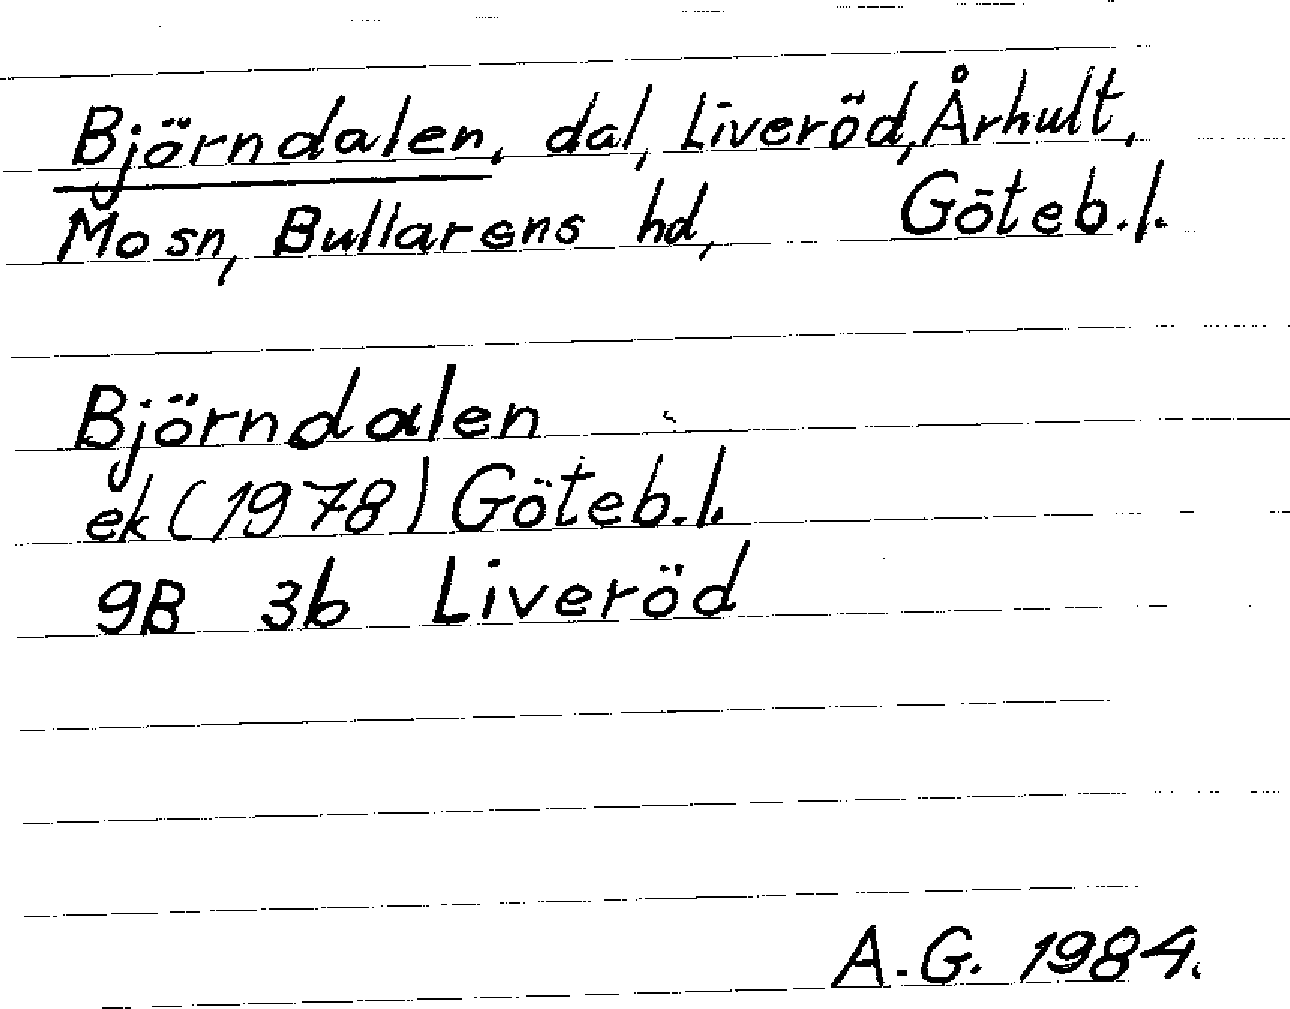 Björndalen, dal, Liveröd, Århult,
Mo sn, Bullarens hd, Göteb.l.
Björndalen
ek (1978) Göteb.l.
9B 3b Liveröd
A.G. 1984.